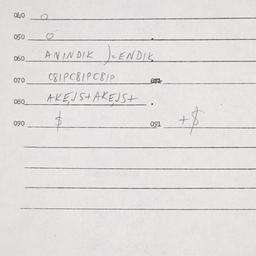 040 0
050 0
060 ANINDIK )=ENDIK
070 C81PC81PC81P
080 AKEJS+AKEJS+
090 $ 091 +$